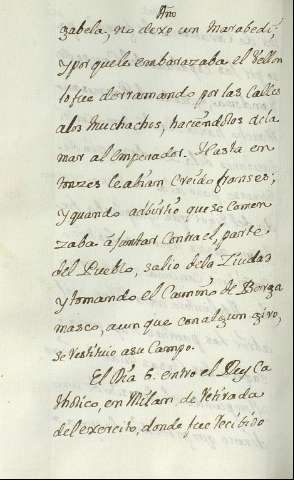 Año
zabela, no dexo un Marabedi,
y porque le embarazaba el Vellon
lo fue derramando por las Calles
a los Muchachos, haciendolos acla
mar al Emperador. Hasta en
tonzes le abian Creido franses,
y quando adbirtio que se Comen
zaba à juntar Contra el, parte
del Pueblo, salio de la Ziudad
y tomando el Camino de Berga
masco, aun que con algun giro,
se restituio a su Campo.
El Dia 6. entro el Rey Ca
tholico, en Milan de retirada
del exercito, donde fue recibido